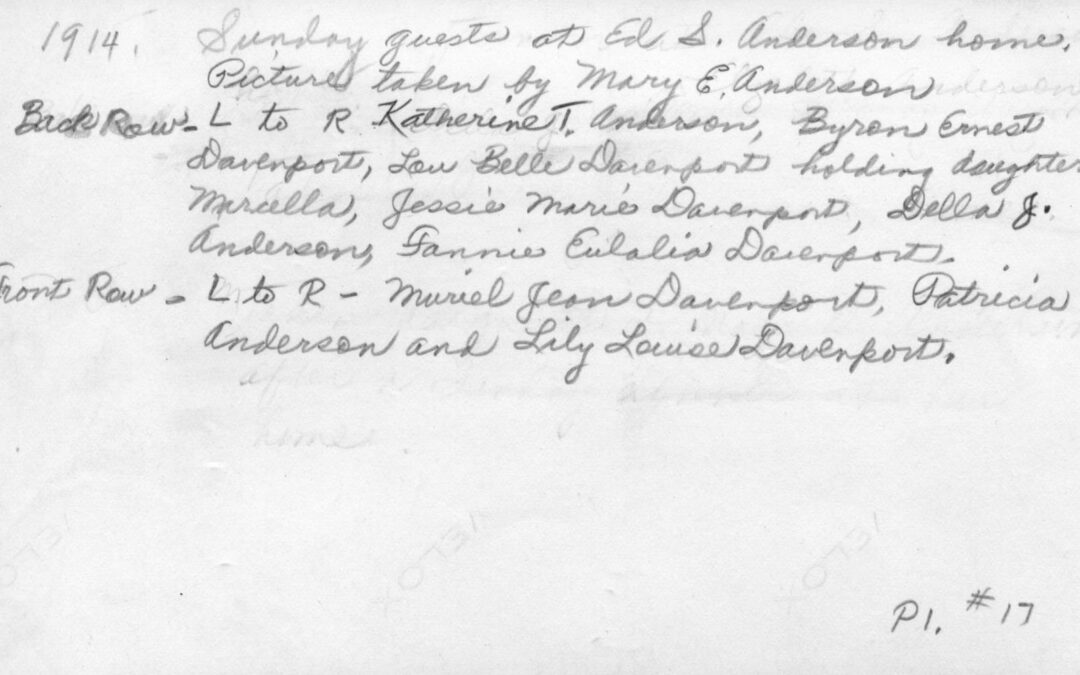 1914. Sunday guests at Ed S. Anderson home.
Picture taken by Mary E. Anderson
Back Row - L to R Katherine T. Anderson, Byron Ernest
Davenport, Lou Belle Davenport holding daughter
Marcella, Jessie Marie Davenport, Della J.
Anderson, Fannie Eulalia Davenport.
Front Row - L to R - Muriel Jean Davenport, Patricia
Anderson and Lily Louise Davenport.
after a
home
P1. #17